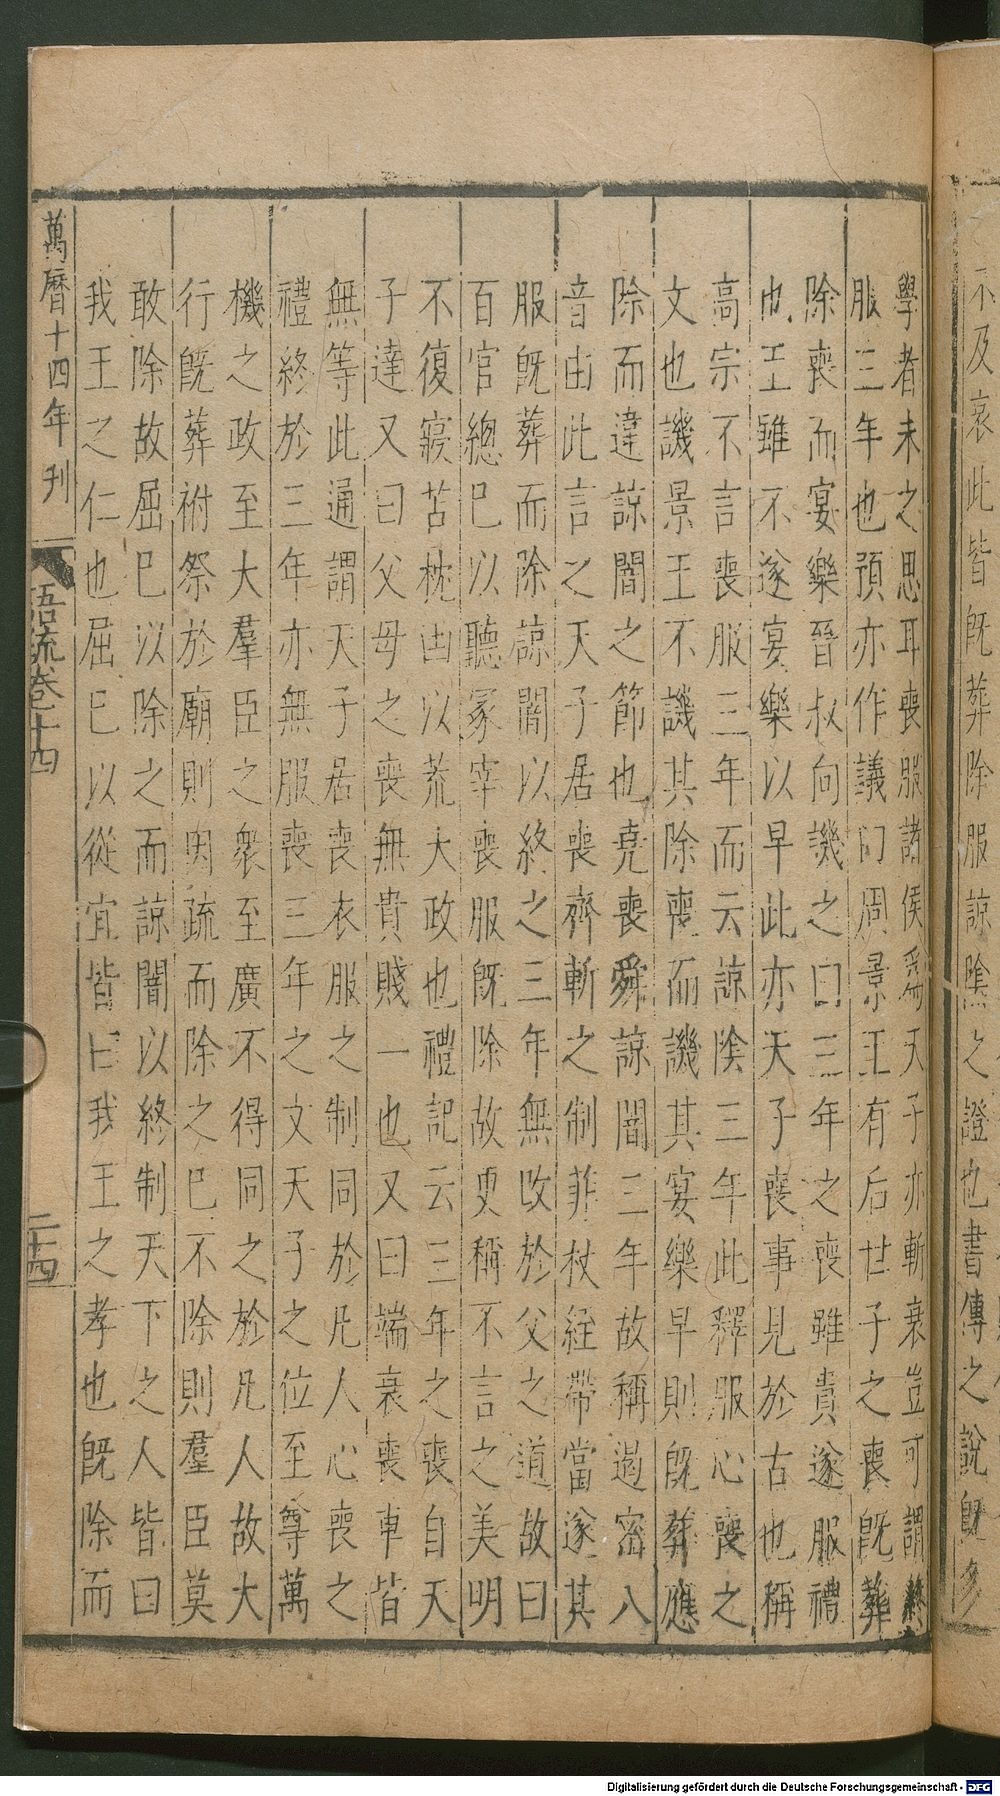 不及哀此皆既葬除服諒陰之證也書傳之說既多
學者未之思耳喪服諸侯爲天子亦斬衰豈可謂終
服三年也預亦作議曰周景王有后世子之喪既葬
除喪而宴樂晉叔向譏之曰三年之喪雖貴遂服禮
也王雖不遂宴樂以早此亦天子喪事見於古也稱
高宗不言喪服三年而云諒陰三年此釋服心喪之
文也譏景王不譏其除喪而譏其宴樂早則既葬應
除而違諒闇之節也堯喪舜諒闇三年故稱遏密八
音由此言之天子居喪齊斬之制菲杖絰帶當遂其
服既葬而除諒闇以終之三年無改於父之道故曰
百官總已以聽冢宰喪服既除故更稱不言之美明
不復寢苫枕凷以荒大政也禮記云三年之喪自天
子達又曰父母之喪無貴賤一也又曰端衰喪車皆
無等此通謂天子居喪衣服之制同於凡人心喪之
禮終於三年亦無服喪三年之文天子之位至尊萬
機之政至大羣臣之衆至廣不得同之於凡人故大
行既葬祔祭於廟則因疏而除之已不除則羣臣莫
敢除故屈已以除之而諒闇以終制天下之人皆曰
我王之仁也屈已以從宜皆曰我王之孝也既除而
萬曆十四年刊 語流卷十四 二十四
Digitalisierung gefördert durch die Deutsche Forschungsgemeinschaft - DFG